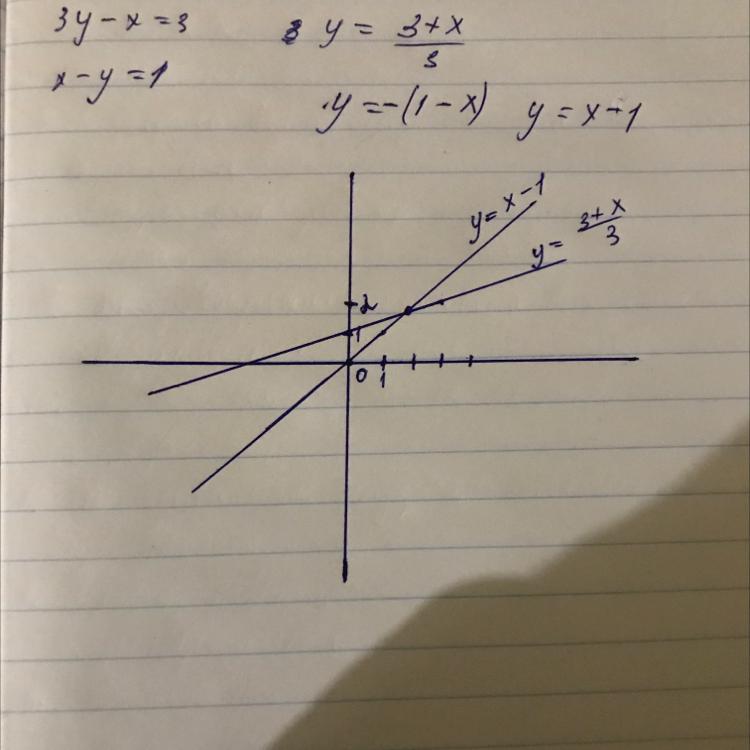 3y - x = 3
y = 3+x/3
x - y = 1
y = -(1 - x) y = x - 1
y = x - 1
y = 3+x/3
2
1
0 1